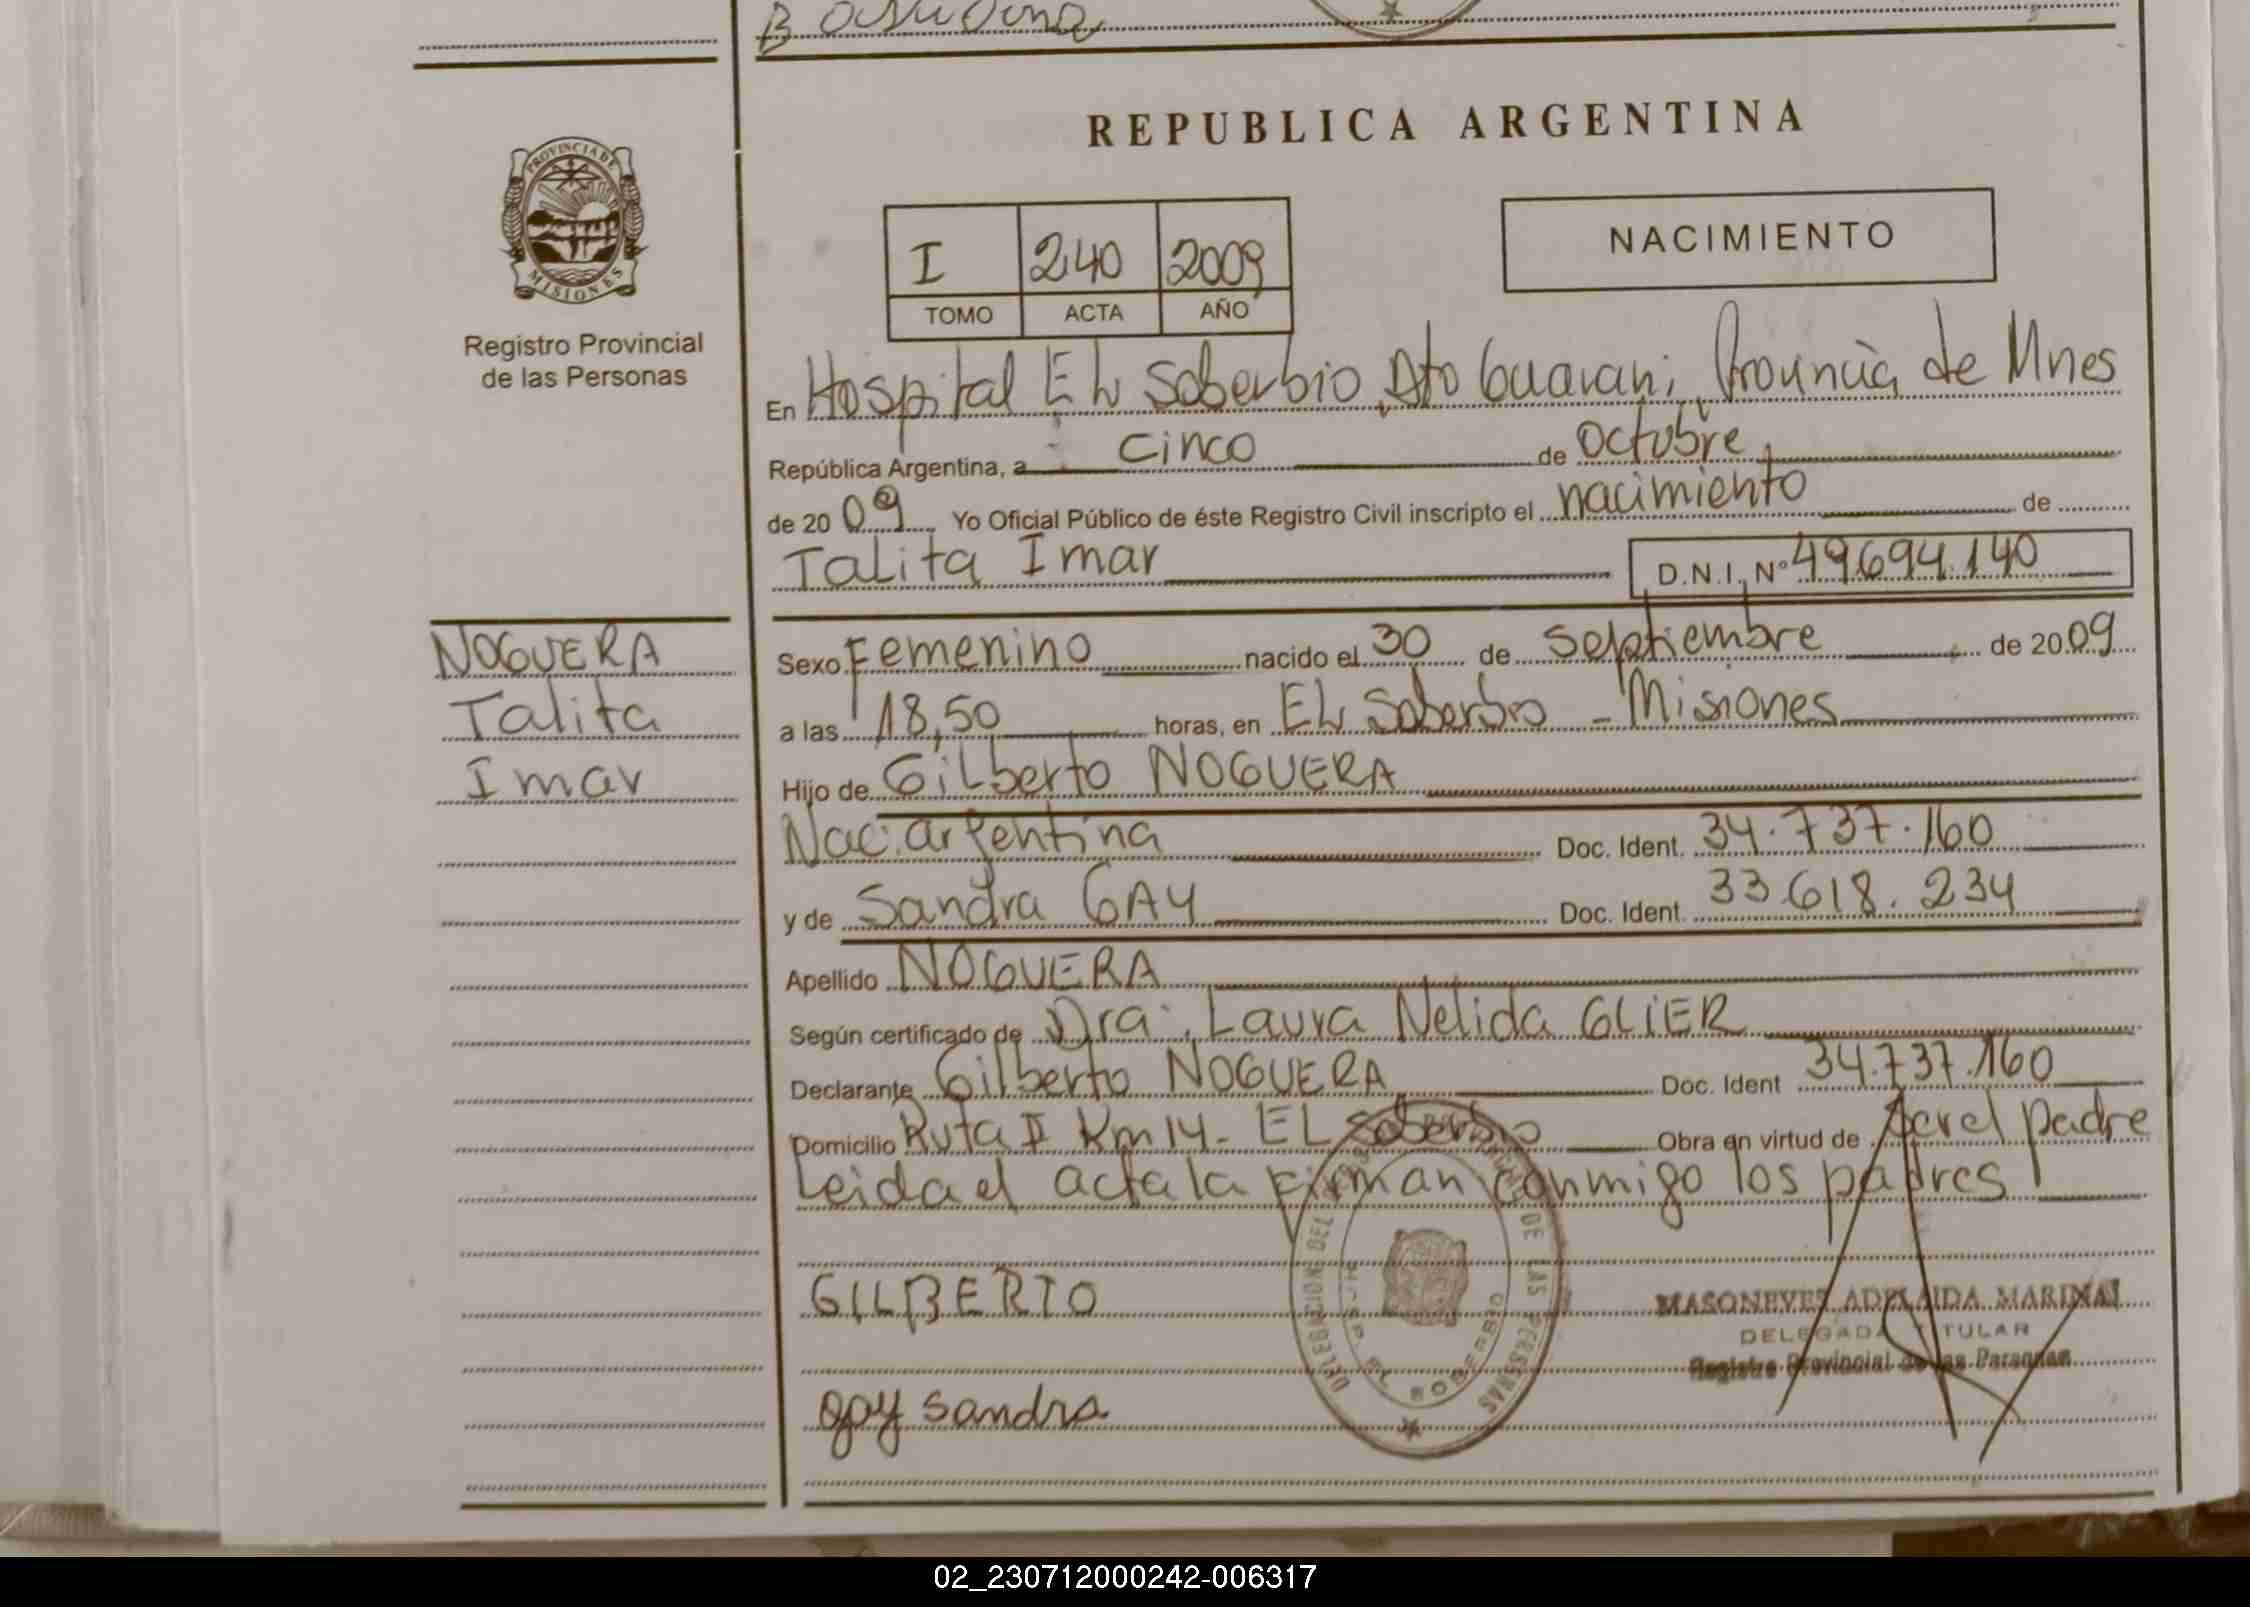 REPUBLICA ARGENTINA
PROVINCIA DE
MISIONES
Registro Provincial
de las Personas
I 240 2009
TOMO ACTA AÑO
NACIMIENTO
En Hospital EL Soberbio, Dto Guarani, Provincia de Mnes
República Argentina, a cinco de octubre
de 2009 Yo Oficial Público de éste Registro Civil inscripto el nacimiento de
Talita Imar D.N.I. Nº 49694.140
NOGUERA
Talita
Imar
Sexo Femenino nacido el 30 de Septiembre de 2009
a las 18,50 horas, en EL Soberbio - Misiones
Hijo de Gilberto NOGUERA
Nac. argentina Doc. Ident. 34.737.160
y de Sandra GAY Doc. Ident. 33.618.234
Apellido NOGUERA
Según certificado de Dra. Laura Nelida GLIER
Declarante Gilberto NOGUERA Doc. Ident 34.737.160
Domicilio Ruta II Km 14- EL Soberbio Obra en virtud de ser el padre
Leida el acta la firman conmigo los padres
GILBERTO
MASONEVES ADELAIDA MARINA
DELEGADA TITULAR
Registro Provincial de las Personas
gay sandra
02_230712000242-006317